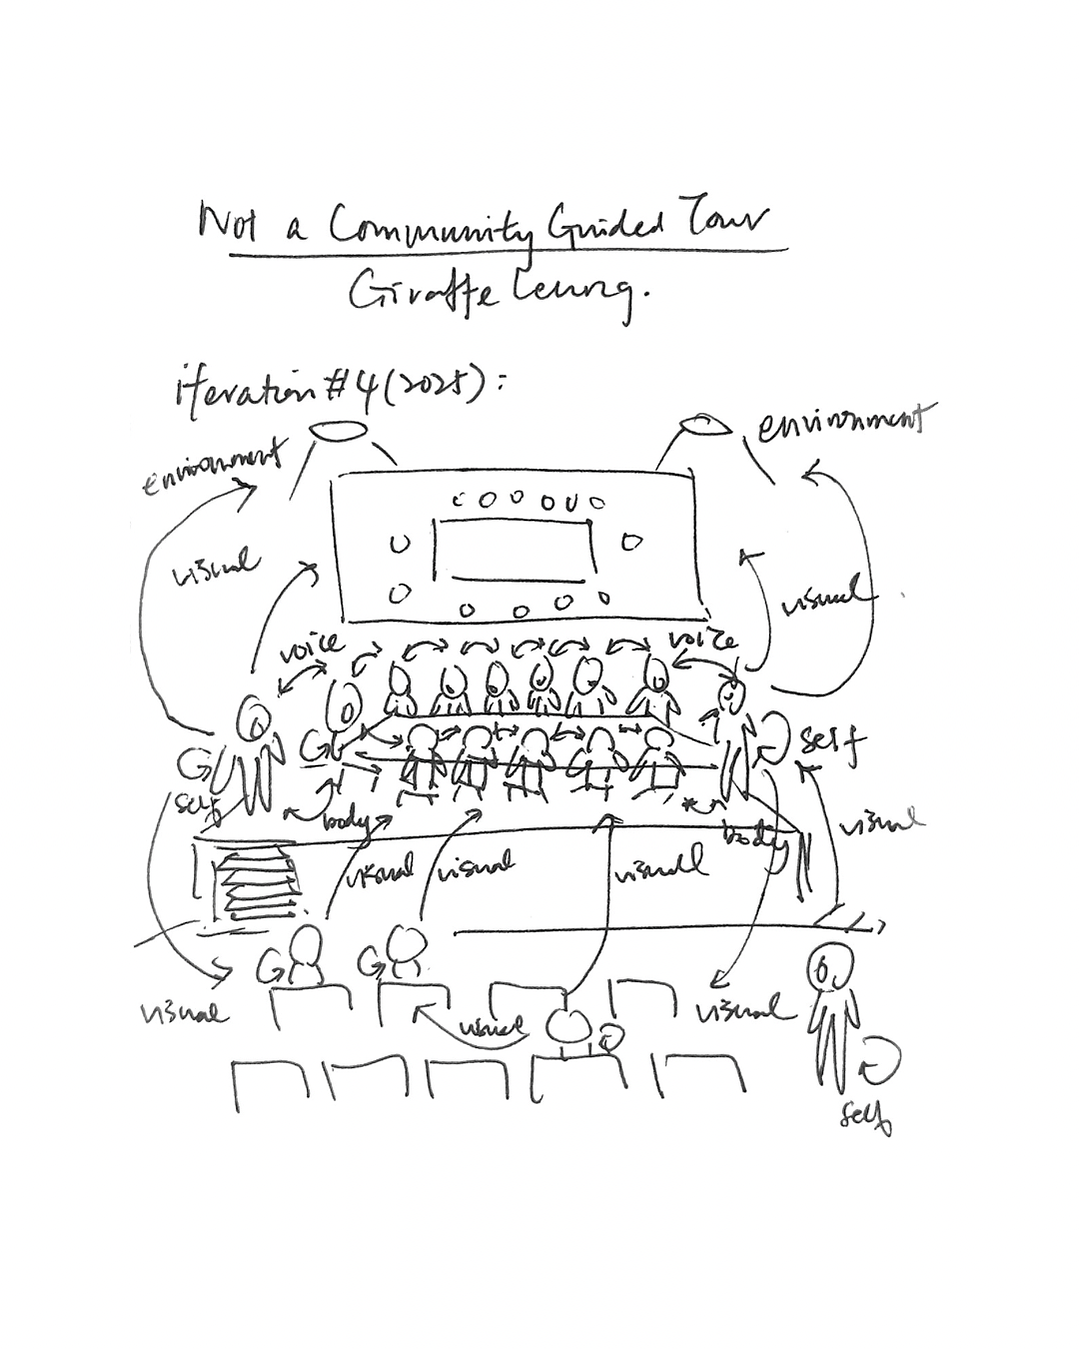 Not a Community Guided Tour
Giraffe Leung.
iteration #4 (2025):
environment
environment
visual
visual
voice
voice
self
self
body
body
visual
visual
visual
visual
visual
visual
visual
visual
self